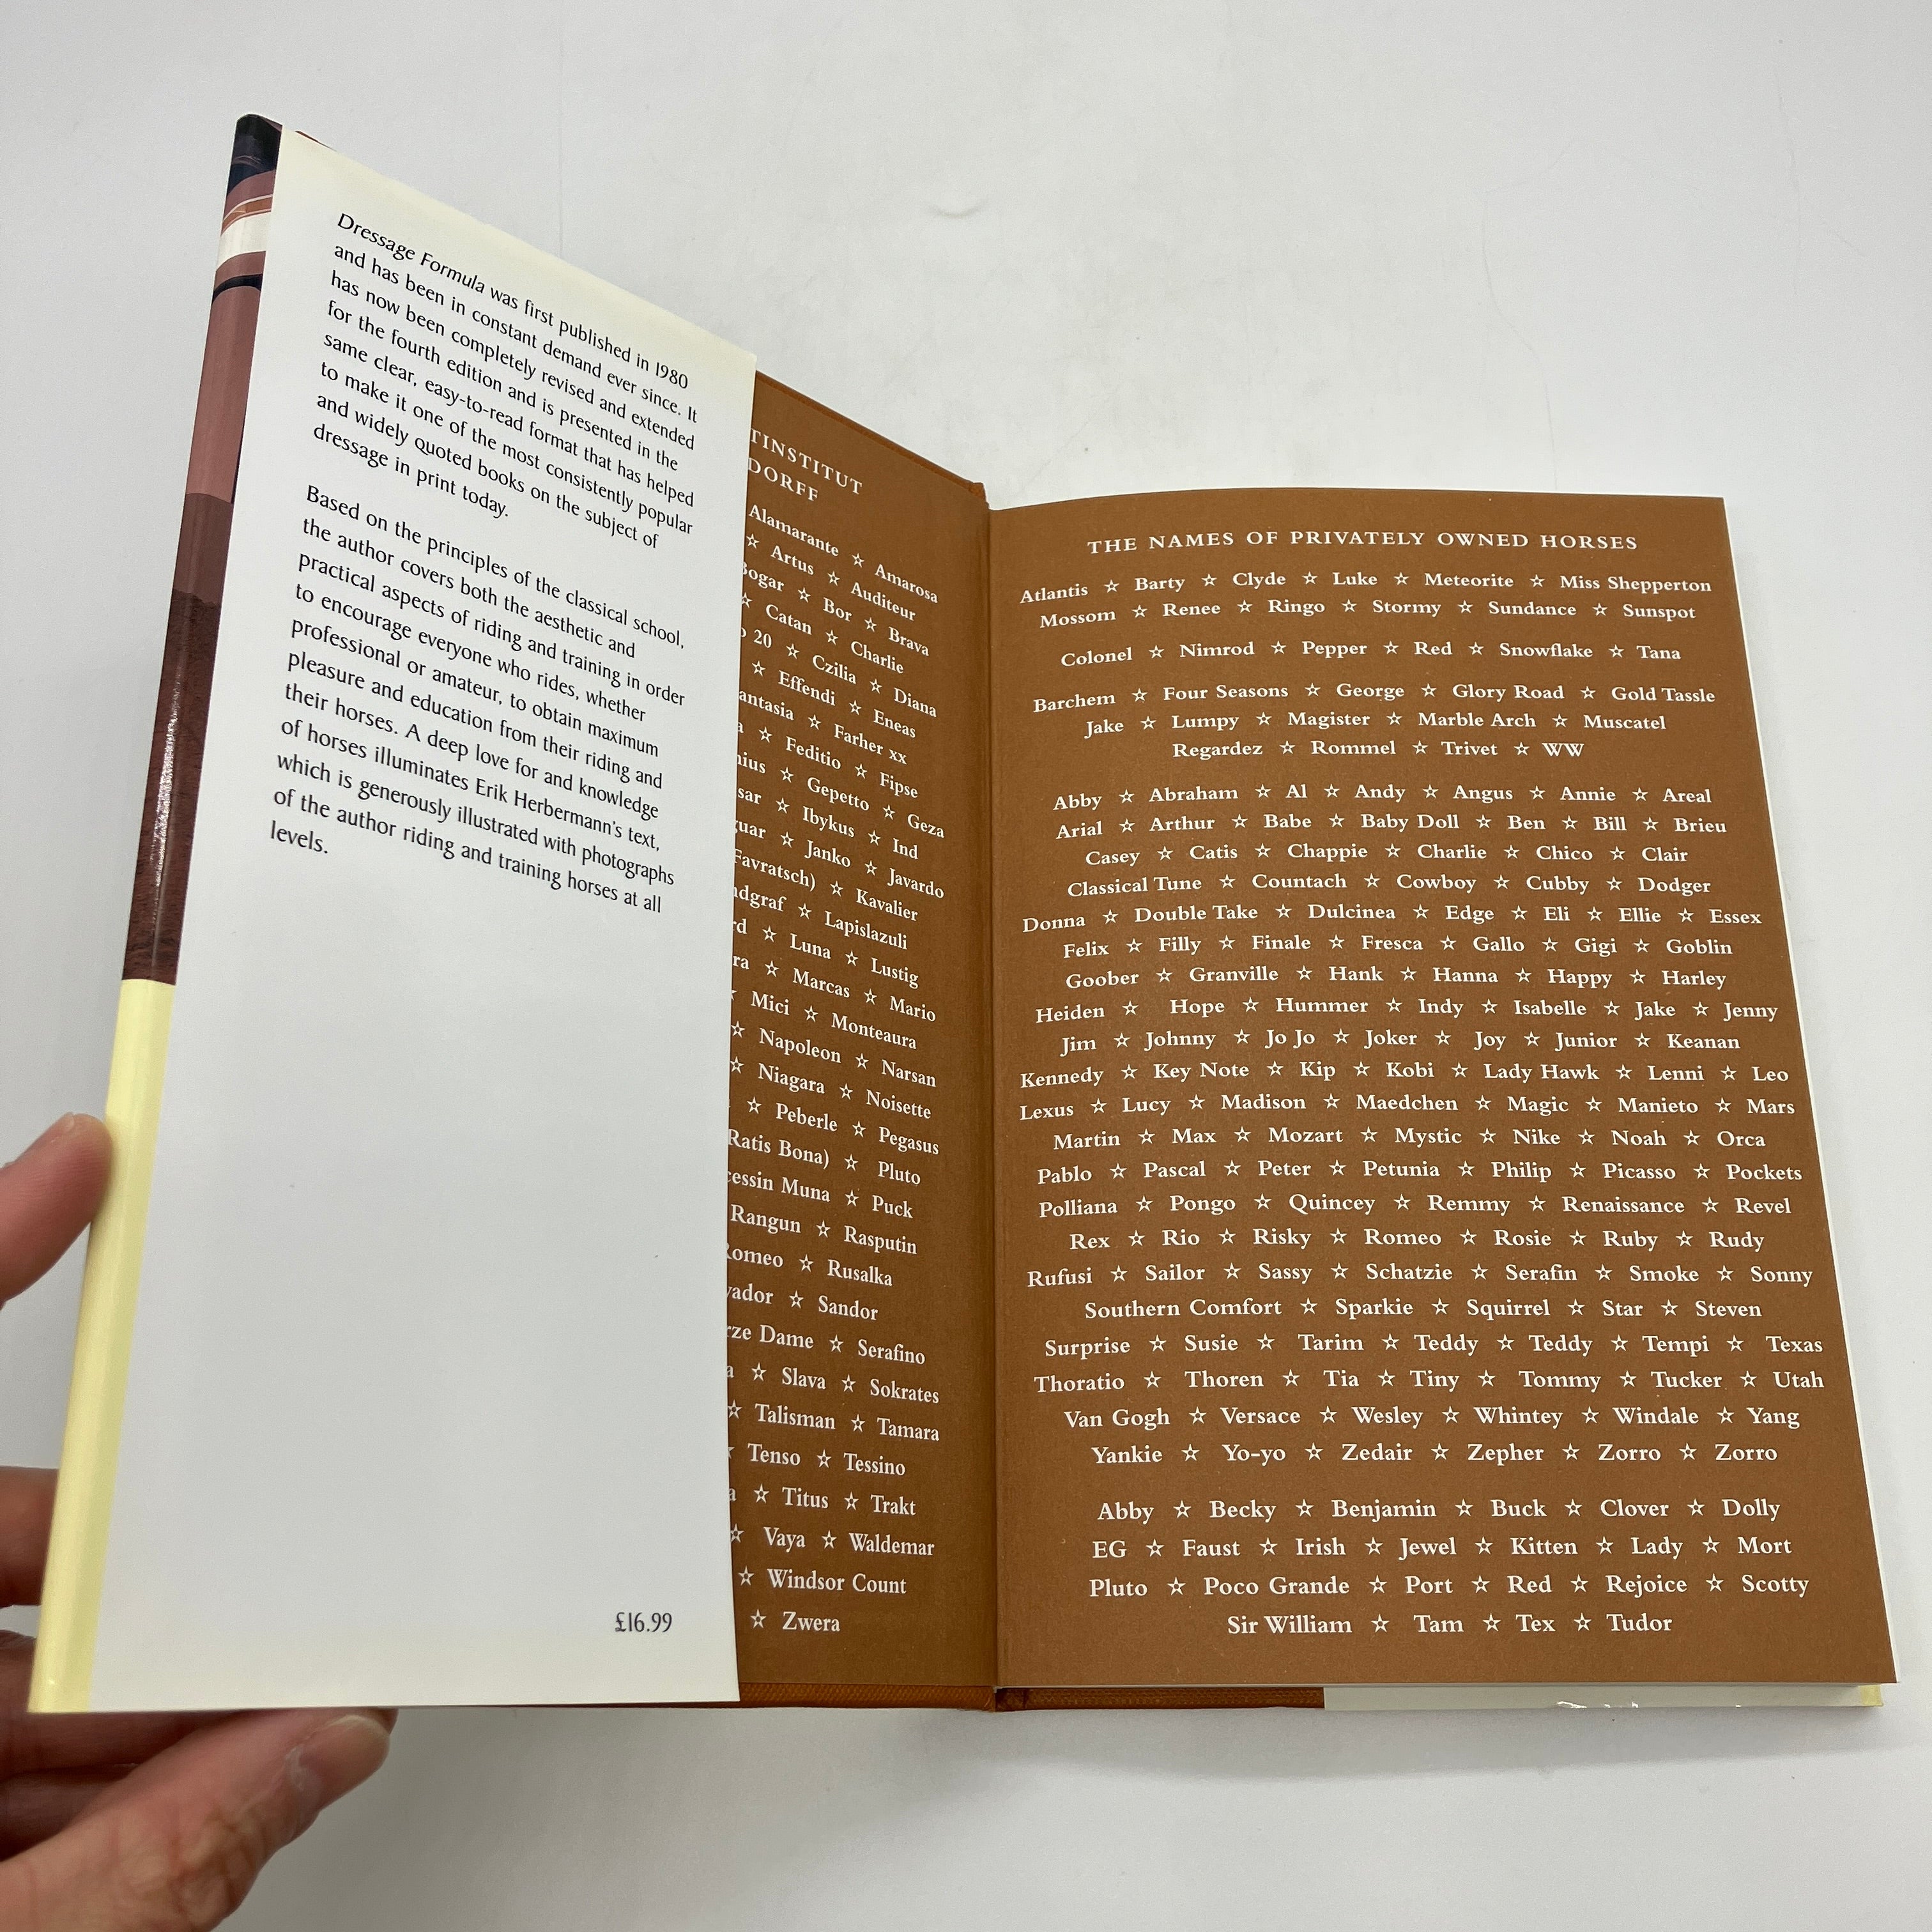 Dressage Formula was first published in 1980
and has been in constant demand ever since. It
has now been completely revised and extended
for the fourth edition and is presented in the
same clear, easy-to-read format that has helped
to make it one of the most consistently popular
and widely quoted books on the subject of
dressage in print today.
Based on the principles of the classical school,
the author covers both the aesthetic and
practical aspects of riding and training in order
to encourage everyone who rides, whether
professional or amateur, to obtain maximum
pleasure and education from their riding and
their horses. A deep love for and knowledge
of horses illuminates Erik Herbermann's text,
which is generously illustrated with photographs
of the author riding and training horses at all
levels.
£16.99
TINSTITUT
DORFF
Alamarante ☆ Amarosa
☆ Artus ☆ Auditeur
Bogar ☆ Bor ☆ Brava
☆ Catan ☆ Charlie
20 ☆ Czilia ☆ Diana
☆ Effendi ☆ Eneas
antasia ☆ Farher xx
a ☆ Feditio ☆ Fipse
nius ☆ Gepetto ☆ Geza
sar ☆ Ibykus ☆ Ind
guar ☆ Janko ☆ Javardo
Favratsch) ☆ Kavalier
ndgraf ☆ Lapislazuli
rd ☆ Luna ☆ Lustig
ra ☆ Marcas ☆ Mario
☆ Mici ☆ Monteaura
☆ Napoleon ☆ Narsan
☆ Niagara ☆ Noisette
☆ Peberle ☆ Pegasus
Ratis Bona) ☆ Pluto
cessin Muna ☆ Puck
Rangun ☆ Rasputin
Romeo ☆ Rusalka
vador ☆ Sandor
rze Dame ☆ Serafino
a ☆ Slava ☆ Sokrates
☆ Talisman ☆ Tamara
☆ Tenso ☆ Tessino
a ☆ Titus ☆ Trakt
☆ Vaya ☆ Waldemar
☆ Windsor Count
☆ Zwera
THE NAMES OF PRIVATELY OWNED HORSES
Atlantis ☆ Barty ☆ Clyde ☆ Luke ☆ Meteorite ☆ Miss Shepperton
Mossom ☆ Renee ☆ Ringo ☆ Stormy ☆ Sundance ☆ Sunspot
Colonel ☆ Nimrod ☆ Pepper ☆ Red ☆ Snowflake ☆ Tana
Barchem ☆ Four Seasons ☆ George ☆ Glory Road ☆ Gold Tassle
Jake ☆ Lumpy ☆ Magister ☆ Marble Arch ☆ Muscatel
Regardez ☆ Rommel ☆ Trivet ☆ WW
Abby ☆ Abraham ☆ Al ☆ Andy ☆ Angus ☆ Annie ☆ Areal
Arial ☆ Arthur ☆ Babe ☆ Baby Doll ☆ Ben ☆ Bill ☆ Brieu
Casey ☆ Catis ☆ Chappie ☆ Charlie ☆ Chico ☆ Clair
Classical Tune ☆ Countach ☆ Cowboy ☆ Cubby ☆ Dodger
Donna ☆ Double Take ☆ Dulcinea ☆ Edge ☆ Eli ☆ Ellie ☆ Essex
Felix ☆ Filly ☆ Finale ☆ Fresca ☆ Gallo ☆ Gigi ☆ Goblin
Goober ☆ Granville ☆ Hank ☆ Hanna ☆ Happy ☆ Harley
Heiden ☆ Hope ☆ Hummer ☆ Indy ☆ Isabelle ☆ Jake ☆ Jenny
Jim ☆ Johnny ☆ Jo Jo ☆ Joker ☆ Joy ☆ Junior ☆ Keanan
Kennedy ☆ Key Note ☆ Kip ☆ Kobi ☆ Lady Hawk ☆ Lenni ☆ Leo
Lexus ☆ Lucy ☆ Madison ☆ Maedchen ☆ Magic ☆ Manieto ☆ Mars
Martin ☆ Max ☆ Mozart ☆ Mystic ☆ Nike ☆ Noah ☆ Orca
Pablo ☆ Pascal ☆ Peter ☆ Petunia ☆ Philip ☆ Picasso ☆ Pockets
Polliana ☆ Pongo ☆ Quincey ☆ Remmy ☆ Renaissance ☆ Revel
Rex ☆ Rio ☆ Risky ☆ Romeo ☆ Rosie ☆ Ruby ☆ Rudy
Rufusi ☆ Sailor ☆ Sassy ☆ Schatzie ☆ Serafin ☆ Smoke ☆ Sonny
Southern Comfort ☆ Sparkie ☆ Squirrel ☆ Star ☆ Steven
Surprise ☆ Susie ☆ Tarim ☆ Teddy ☆ Teddy ☆ Tempi ☆ Texas
Thoratio ☆ Thoren ☆ Tia ☆ Tiny ☆ Tommy ☆ Tucker ☆ Utah
Van Gogh ☆ Versace ☆ Wesley ☆ Whintey ☆ Windale ☆ Yang
Yankie ☆ Yo-yo ☆ Zedair ☆ Zepher ☆ Zorro ☆ Zorro
Abby ☆ Becky ☆ Benjamin ☆ Buck ☆ Clover ☆ Dolly
EG ☆ Faust ☆ Irish ☆ Jewel ☆ Kitten ☆ Lady ☆ Mort
Pluto ☆ Poco Grande ☆ Port ☆ Red ☆ Rejoice ☆ Scotty
Sir William ☆ Tam ☆ Tex ☆ Tudor